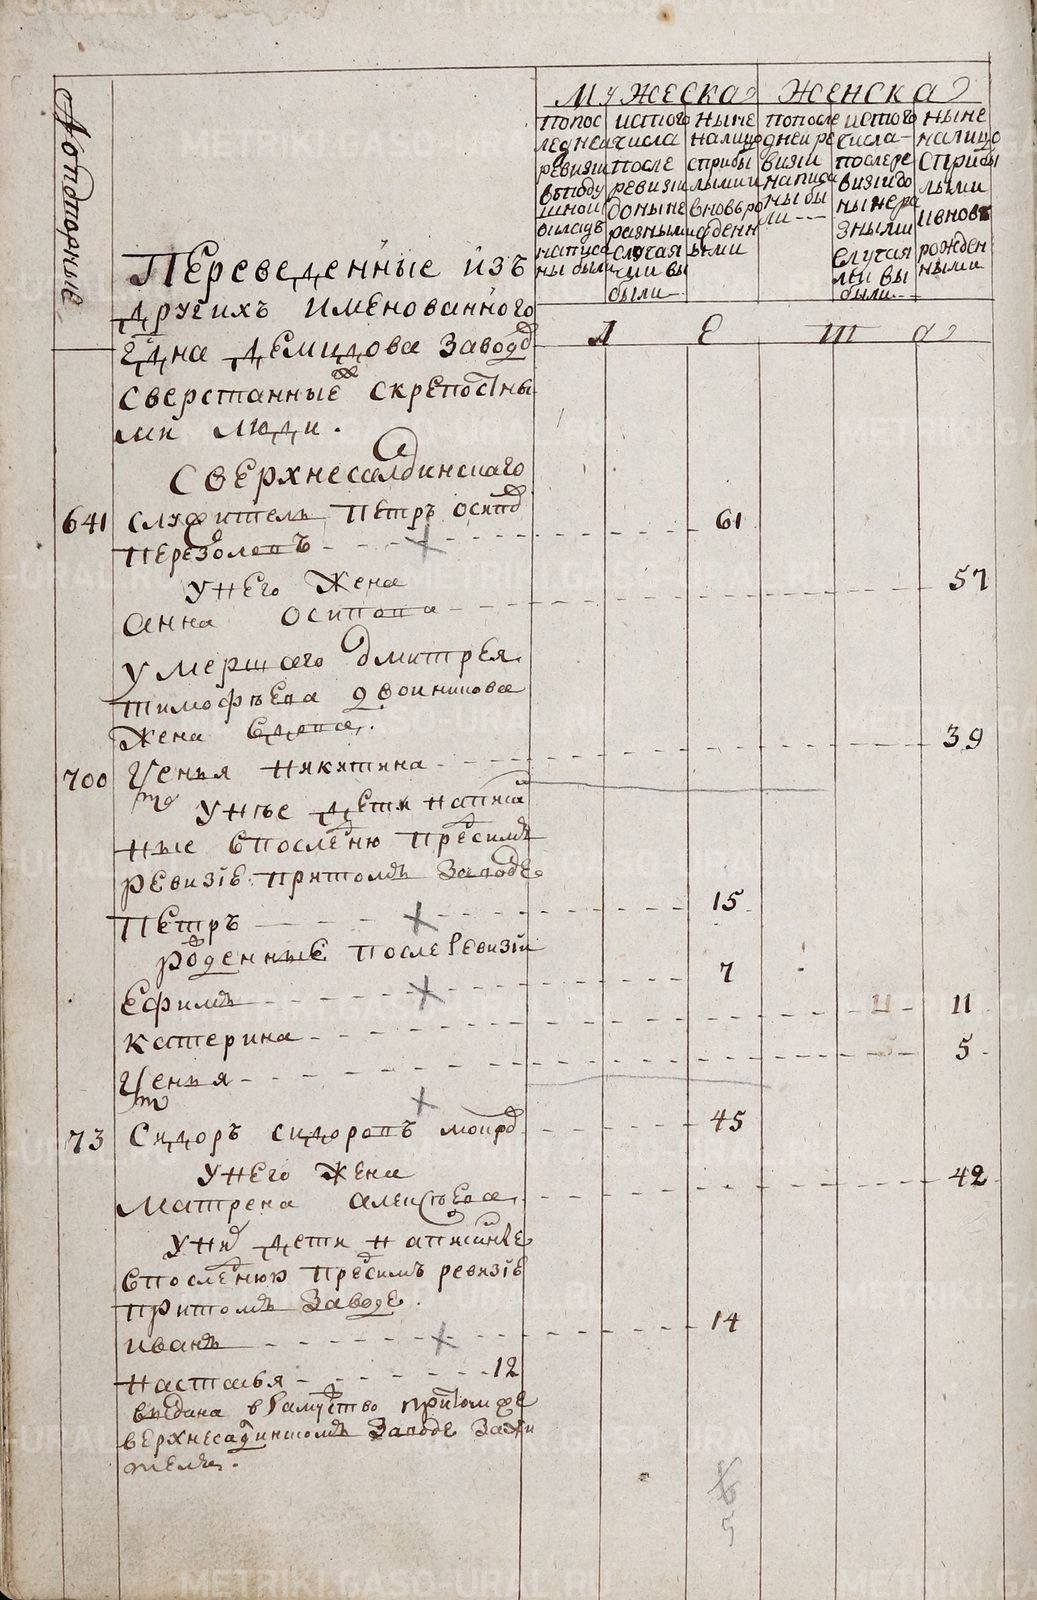 Мужеска Женска
попоследней ревизии вподушной окладъ написаны были
истого числа после ревизии доныне разными случаями выбыли
ныне налицо сприбылыми и вновь рожденными
попоследней ревизии написаны были
истого числа после ревизии доныне разными случаями выбыли
ныне налицо сприбылыми и вновь рожденными
Лета
Переведенные изъ
другихъ именованного
дна Демидова заводо
сверстанные скрепостны
ми люди.
Сверхнесалдинскаго
641 служитель Петръ осипо 61
Перезоловъ
Унего жена
анна осипова 57
умершаго дмитрея
тимофѣева двоиникова
жена вдова
700 Ксенья никитина 39
Унѣе дети написа
ные впоследнюю предсимъ
ревизiе притомъ заводе
Петръ 15
роденные после ревизiи
Ефимъ 7
катерина 11 11
Ксенья 5 5
73 Сидоръ сидоровъ 45
Унего жена
матрена алексѣева 42
Уних дети написанные
впоследнюю предсимъ ревизiе
притомъ заводе.
иванъ 14
настасья 12
выдана взамужство притомже
верхнесалдинскомъ заводе зажи
теля.
5
METRIKI.GASO-URAL.RU